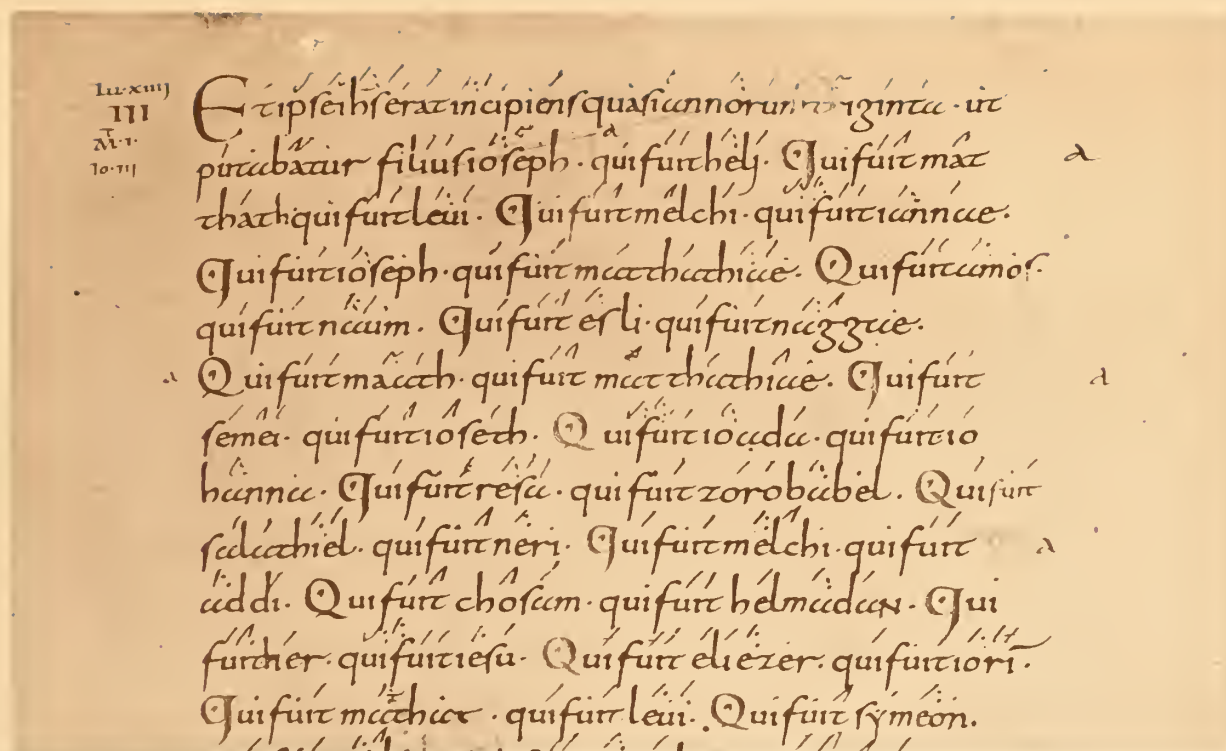 Lu·xiiij
III
M·I·
Io·III
Et ipse ihs erat incipiens quasi annorum triginta · ut
putabatur filius ioseph · qui fuit heli · Qui fuit mat
that· qui fuit leui · Qui fuit melchi · qui fuit iannae ·
Qui fuit ioseph · qui fuit matthathiae · Qui fuit amos ·
qui fuit naum · Qui fuit esli · qui fuit naggae ·
Qui fuit maath · qui fuit matthathiae · Qui fuit
semei · qui fuit ioseth · Qui fuit ioada · qui fuit io
hanna · Qui fuit resa · qui fuit zorobabel · Qui fuit
salathiel · qui fuit neri · Qui fuit melchi · qui fuit
addi · Qui fuit chosam · qui fuit helmadaN · Qui
fuit her · qui fuit iesu · Qui fuit eliezer · qui fuit iorī ·
Qui fuit mathiae · qui fuit leui · Qui fuit symeon ·